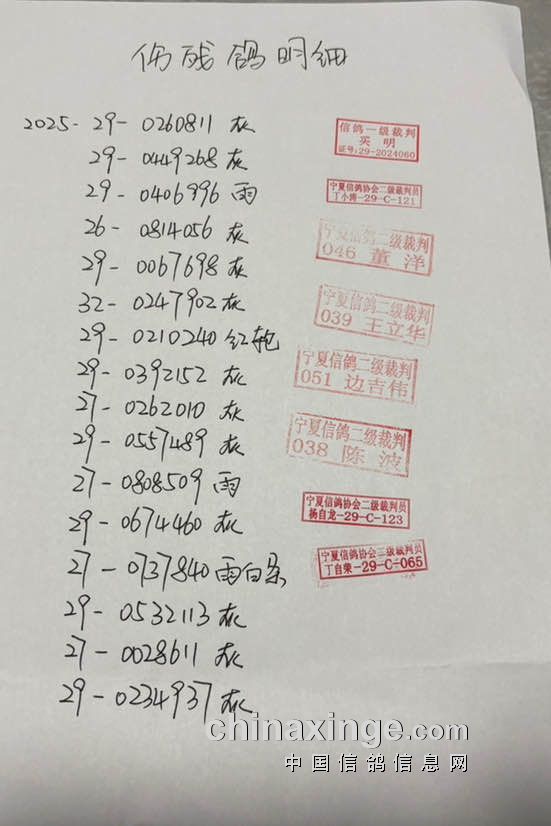 伤残鸽明细
2025-29-0260811 灰
29-0449268 灰
29-0406996 雨
26-0814056 灰
29-0067698 灰
32-0247902 灰
29-0210240 红轮
29-0392152 灰
27-0262010 灰
29-0557489 灰
27-0808509 雨
29-0674460 灰
27-0737840 雨白条
29-0532113 灰
27-0028611 灰
29-0234937 灰
信鸽一级裁判
买 明
证号:29-2024060
宁夏信鸽协会二级裁判员
丁小涛-29-C-121
宁夏信鸽二级裁判
046 董 洋
宁夏信鸽二级裁判
039 王立华
宁夏信鸽二级裁判
051 边吉伟
宁夏信鸽二级裁判
038 陈 波
宁夏信鸽协会二级裁判员
杨自龙-29-C-123
宁夏信鸽协会二级裁判员
丁自荣-29-C-065
chinaxinge.com
中国信鸽信息网